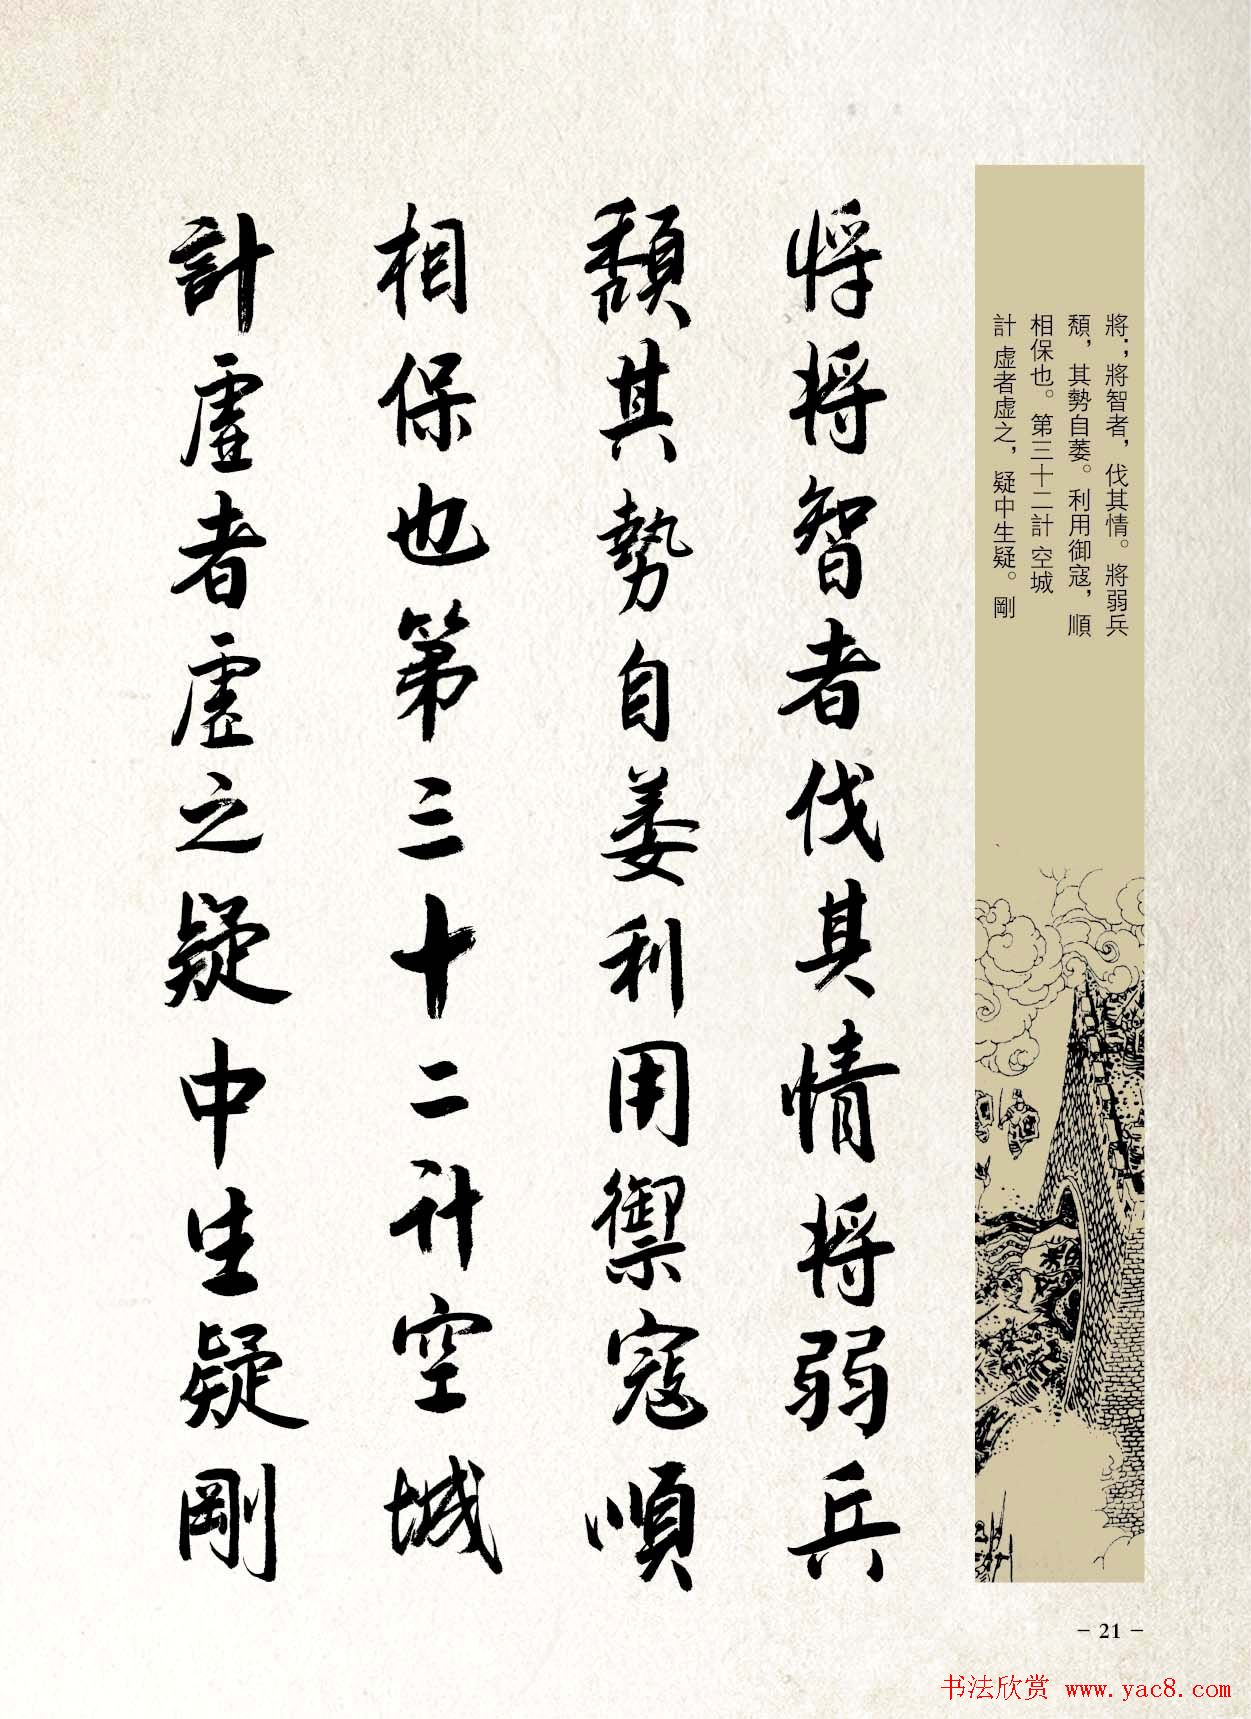 將；將智者，伐其情。將弱兵
頹，其勢自萎。利用御寇，順
相保也。第三十二計 空城
計 虛者虛之，疑中生疑。剛
将将智者伐其情将弱兵
頹其勢自萎利用禦寇順
相保也第三十二计空城
計虛者虛之疑中生疑剛
- 21 -
书法欣赏 www.yac8.com